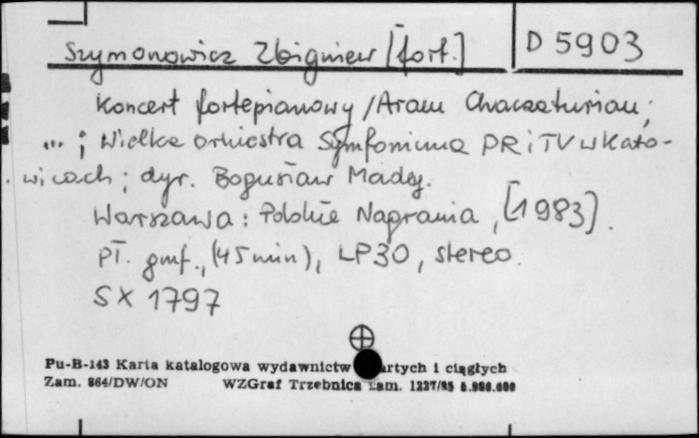 Szymonowicz Zbigniew [fort.]
D 5903
Koncert fortepianowy / Aram Chaczaturian;
... ; Wielka Orkiestra Symfoniczna PR i TV w Kato-
wicach; dyr. Bogusław Madey.
Warszawa: Polskie Nagrania, [1983].
Pł. gmf., (45 min), LP30, stereo.
SX 1797
Pu-B-143 Karta katalogowa wydawnictw artych i ciągłych
Zam. 864/DW/ON WZGraf Trzebnica zam. 1227/85